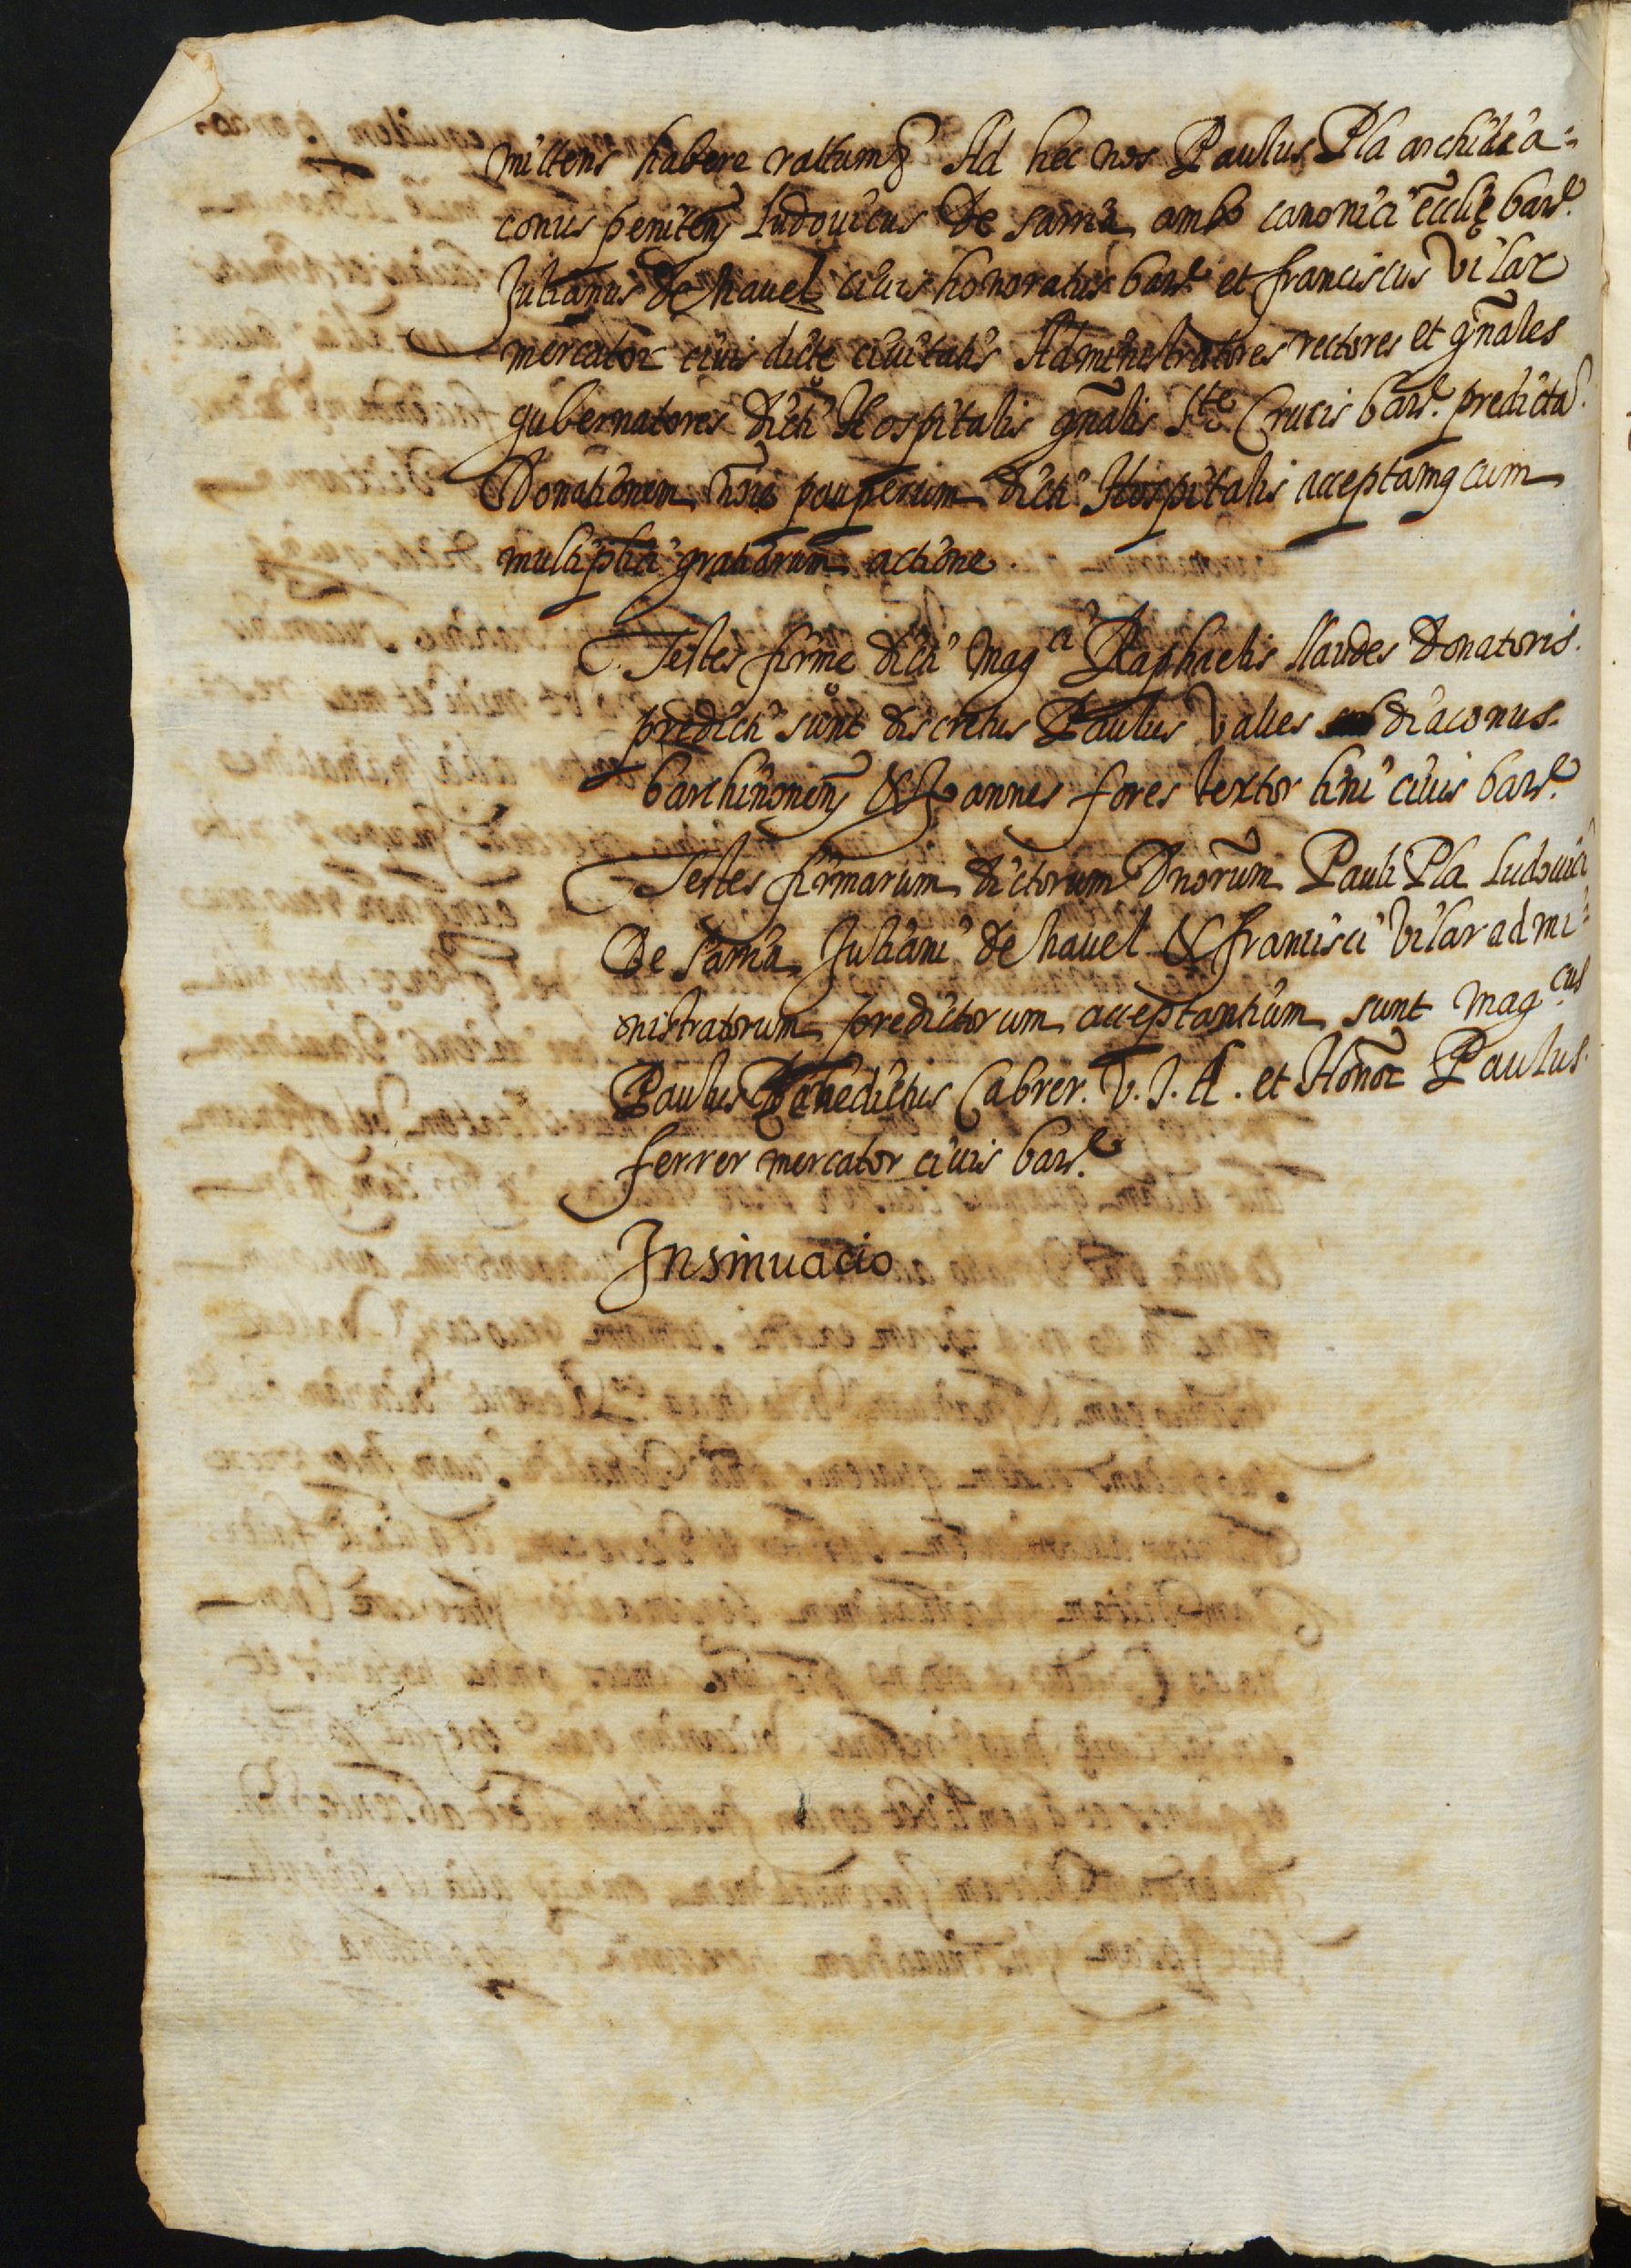 mittens habere rattum Ad hec nos Paulus Pla archidia=
conus peniten̄ Ludouicus De sarria ambo canonici eccliē barñ.
Julianus de Nauel ciuis honoratus barñ. et franciscus Vilar
mercator ciuis dicte ciuitatis Administratores rectores et gn̄ales
gubernatores dicti Hospitalis gn̄alis Ste Crucis barñ. predictã.
Donationem noīe pauperum dicti Hospitalis acceptamq cum
multiplici gratiarum actione
Testes firme dicti Magci Raphaelis llaudes Donatoris.
predicti sunt discretus Paulus Valles diaconus.
barchinonen̄ & Joannes fores textor lini ciuis barñ.
Testes firmarum dictorum Dnōrum Pauli Pla Ludouici
De Sarria Juliani de Nauel & francisci Vilar admi=
nistratorum predictorum acceptantium sunt Mag.cus
Paulus Benedictus Cabrer. V. J. D. et Honor Paulus.
ferrer mercator ciuis barñ.
Insinuacio